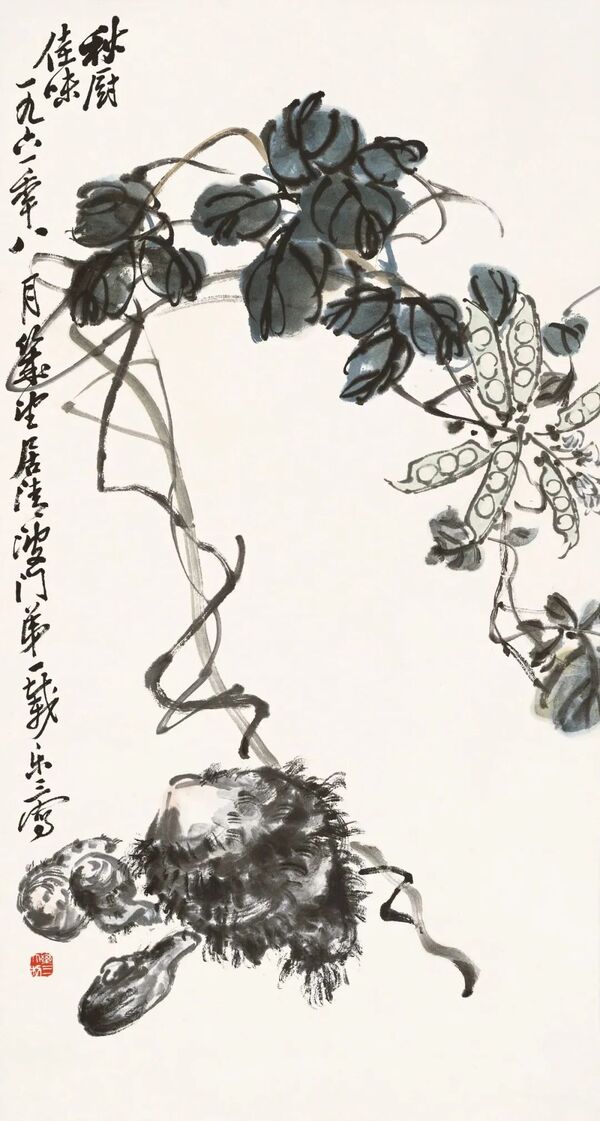 秋厨
佳味
一九六一年八月幾望居清波门第一載乐三寫